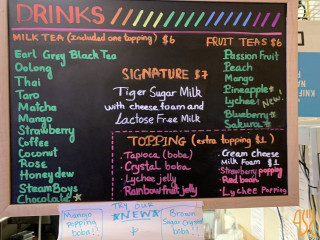 DRINKS
MILK TEA (Included one topping) $6
Earl Grey Black Tea
Oolong
Thai
Taro
Matcha
Mango
Strawberry
Coffee
Coconut
Rose
Honeydew
SteamBoys
Chocolate
SIGNATURE $7
Tiger Sugar Milk
with cheese foam and
Lactose Free Milk
FRUIT TEAS $6
Passion Fruit
Peach
Mango
Pineapple
Lychee New!
Blueberry
Sakura
TOPPING (extra topping $1)
Tapioca (boba)
Crystal boba
Lychee jelly
Rainbow fruit jelly
Cream cheese
Milk Foam $1
Strawberry popping
Red bean
Lychee Popping
TRY OUR
NEW
Mango
Popping
boba!!
Brown
Sugar Crystal
boba!!